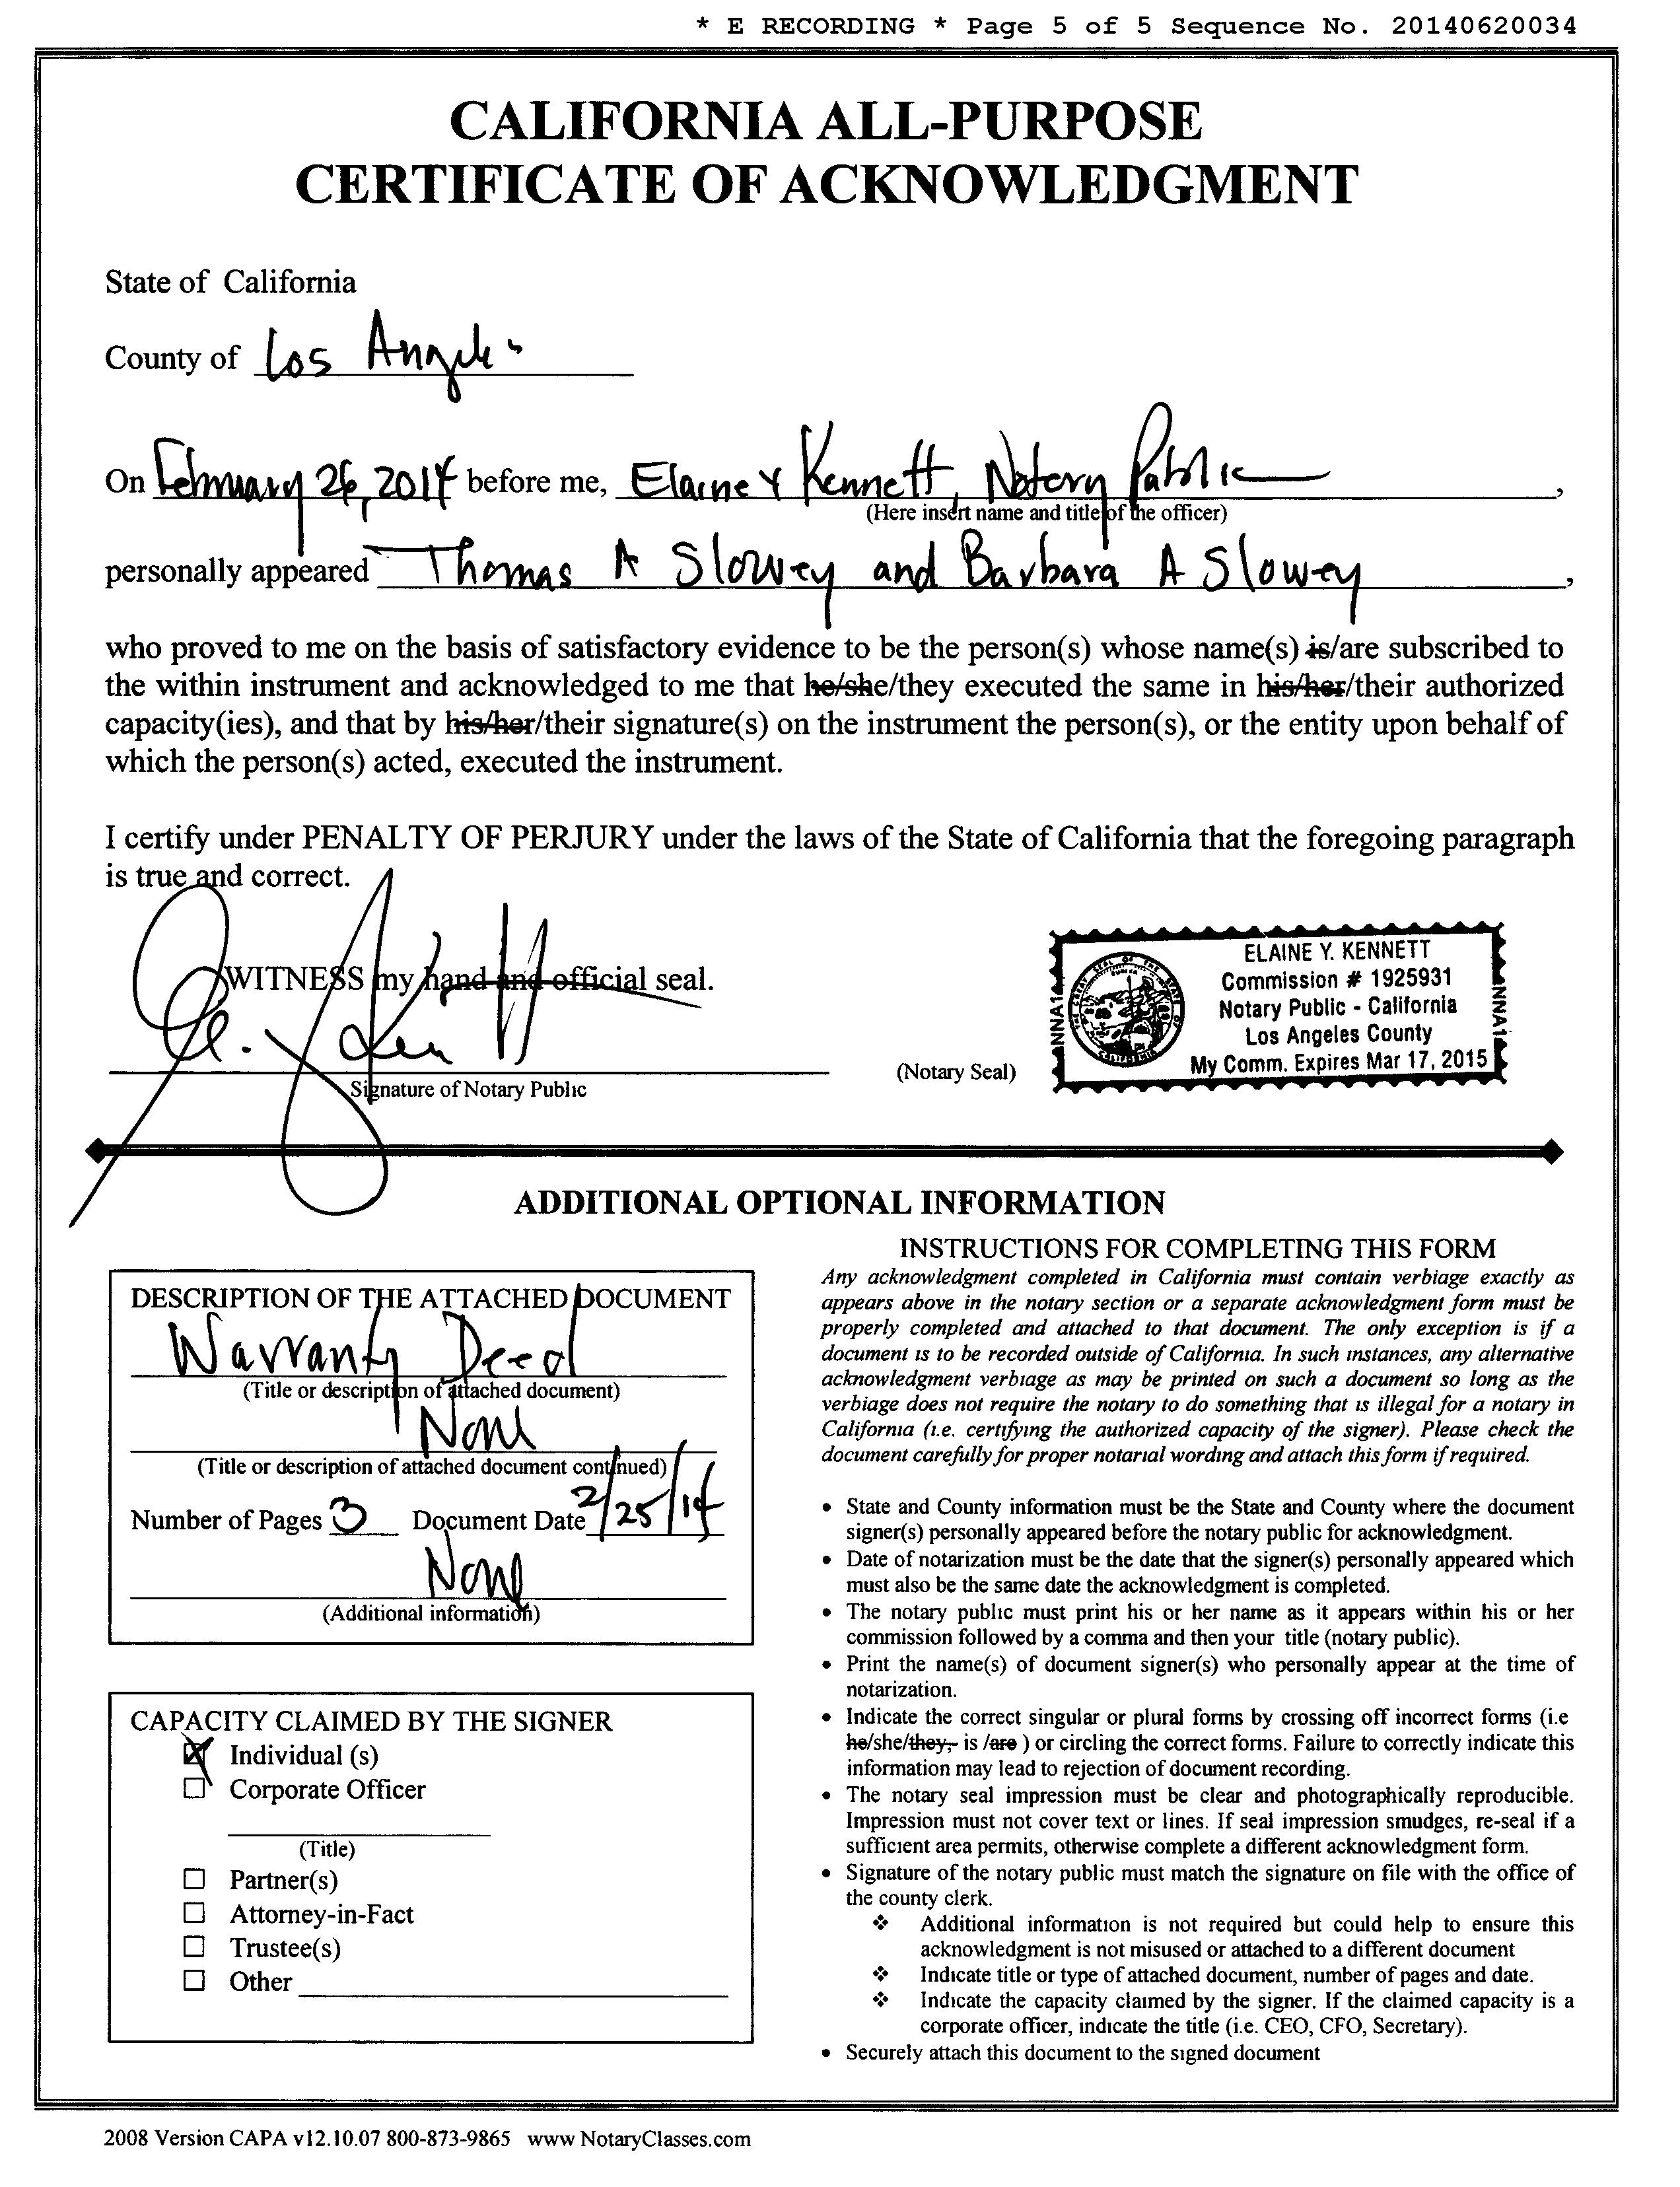 * E RECORDING * Page 5 of 5 Sequence No. 20140620034
CALIFORNIA ALL-PURPOSE
CERTIFICATE OF ACKNOWLEDGMENT
State of California
County of Los Angeles
On February 26, 2014 before me, Elaine Y Kennett, Notary Public,
(Here insert name and title of the officer)
personally appeared Thomas A Slowey and Barbara A Slowey,
who proved to me on the basis of satisfactory evidence to be the person(s) whose name(s) is/are subscribed to
the within instrument and acknowledged to me that he/she/they executed the same in his/her/their authorized
capacity(ies), and that by his/her/their signature(s) on the instrument the person(s), or the entity upon behalf of
which the person(s) acted, executed the instrument.
I certify under PENALTY OF PERJURY under the laws of the State of California that the foregoing paragraph
is true and correct.
WITNESS my hand and official seal.
Signature of Notary Public
(Notary Seal)
ELAINE Y. KENNETT
Commission # 1925931
Notary Public - California
Los Angeles County
My Comm. Expires Mar 17, 2015
ADDITIONAL OPTIONAL INFORMATION
DESCRIPTION OF THE ATTACHED DOCUMENT
Warranty Deed
(Title or description of attached document)
None
(Title or description of attached document continued)
Number of Pages 3 Document Date 2/25/14
None
(Additional information)
CAPACITY CLAIMED BY THE SIGNER
Individual (s)
Corporate Officer
(Title)
Partner(s)
Attorney-in-Fact
Trustee(s)
Other
INSTRUCTIONS FOR COMPLETING THIS FORM
Any acknowledgment completed in California must contain verbiage exactly as
appears above in the notary section or a separate acknowledgment form must be
properly completed and attached to that document. The only exception is if a
document is to be recorded outside of California. In such instances, any alternative
acknowledgment verbiage as may be printed on such a document so long as the
verbiage does not require the notary to do something that is illegal for a notary in
California (i.e. certifying the authorized capacity of the signer). Please check the
document carefully for proper notarial wording and attach this form if required.
• State and County information must be the State and County where the document
signer(s) personally appeared before the notary public for acknowledgment.
• Date of notarization must be the date that the signer(s) personally appeared which
must also be the same date the acknowledgment is completed.
• The notary public must print his or her name as it appears within his or her
commission followed by a comma and then your title (notary public).
• Print the name(s) of document signer(s) who personally appear at the time of
notarization.
• Indicate the correct singular or plural forms by crossing off incorrect forms (i.e
he/she/they,- is /are ) or circling the correct forms. Failure to correctly indicate this
information may lead to rejection of document recording.
• The notary seal impression must be clear and photographically reproducible.
Impression must not cover text or lines. If seal impression smudges, re-seal if a
sufficient area permits, otherwise complete a different acknowledgment form.
• Signature of the notary public must match the signature on file with the office of
the county clerk.
❖ Additional information is not required but could help to ensure this
acknowledgment is not misused or attached to a different document
❖ Indicate title or type of attached document, number of pages and date.
❖ Indicate the capacity claimed by the signer. If the claimed capacity is a
corporate officer, indicate the title (i.e. CEO, CFO, Secretary).
• Securely attach this document to the signed document
2008 Version CAPA v12.10.07 800-873-9865 www NotaryClasses.com